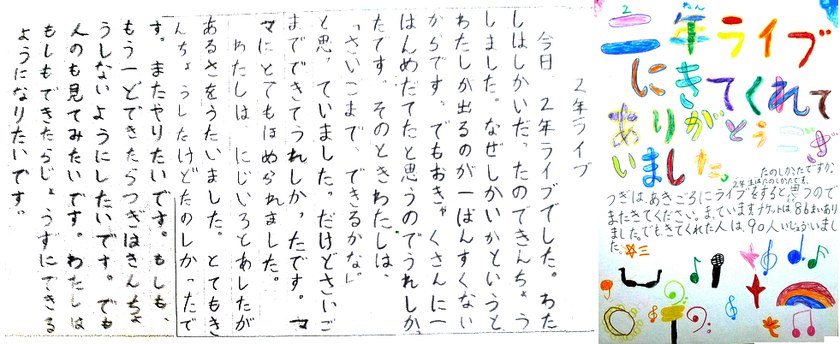 ２年ライブ
今日、２年ライブでした。わた
しはしかいだったのできんちょう
しました。なぜしかいかというと
わたしが出るのが一ばんすくない
からです。でもおきゃくさんに一
はんめだてたと思うのでうれしか
たてす。そのときわたしは、
「さいこまで、できるかな」
と思っていました。だけどさいご
までできてうれしかったです。マ
マにとてもほめられました。
わたしは、にじいろとあしたが
あるさをうたいました。とてもき
んちょうしたけどたのしかったで
す。またやりたいです。もしも、
もう一どできたらつぎはきんちょ
うしないようにしたいです。でも
人のも見てみたいです。わたしは
もしもできたらじょうずにできる
ようになりたいです。
二年ライブ
にきてくれて
ありがとうござ
いました。
たのしかたですか。
２年生はたのしかたです。
つぎは、あきごろにライブをすると思うので
またきてください。まっていますチケットは86まいあり
ました。でもきてくれた人は、90人いじょういまし
た。